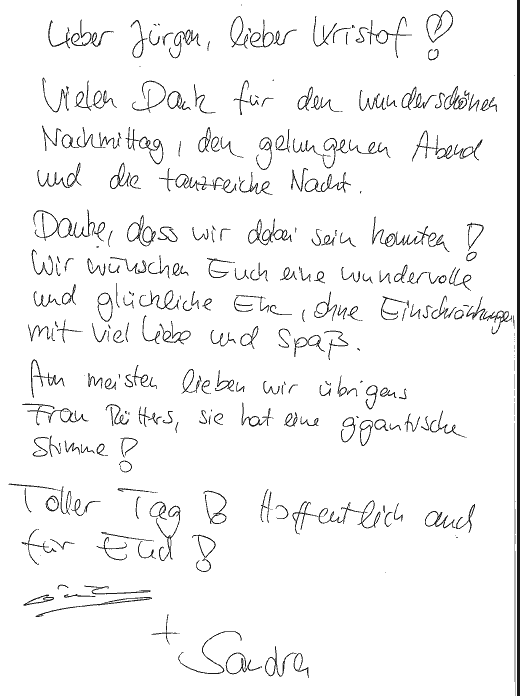 Lieber Jürgen, lieber Kristof!
Vielen Dank für den wunderschönen
Nachmittag, den gelungenen Abend
und die tanzreiche Nacht.
Danke, dass wir dabei sein konnten!
Wir wünschen Euch eine wundervolle
und glückliche Ehe, ohne Einschränkungen
mit viel Liebe und Spaß.
Am meisten lieben wir übrigens
Frau Rütters, sie hat eine gigantische
Stimme!
Toller Tag! Hoffentlich auch
für Euch!
+ Sandra